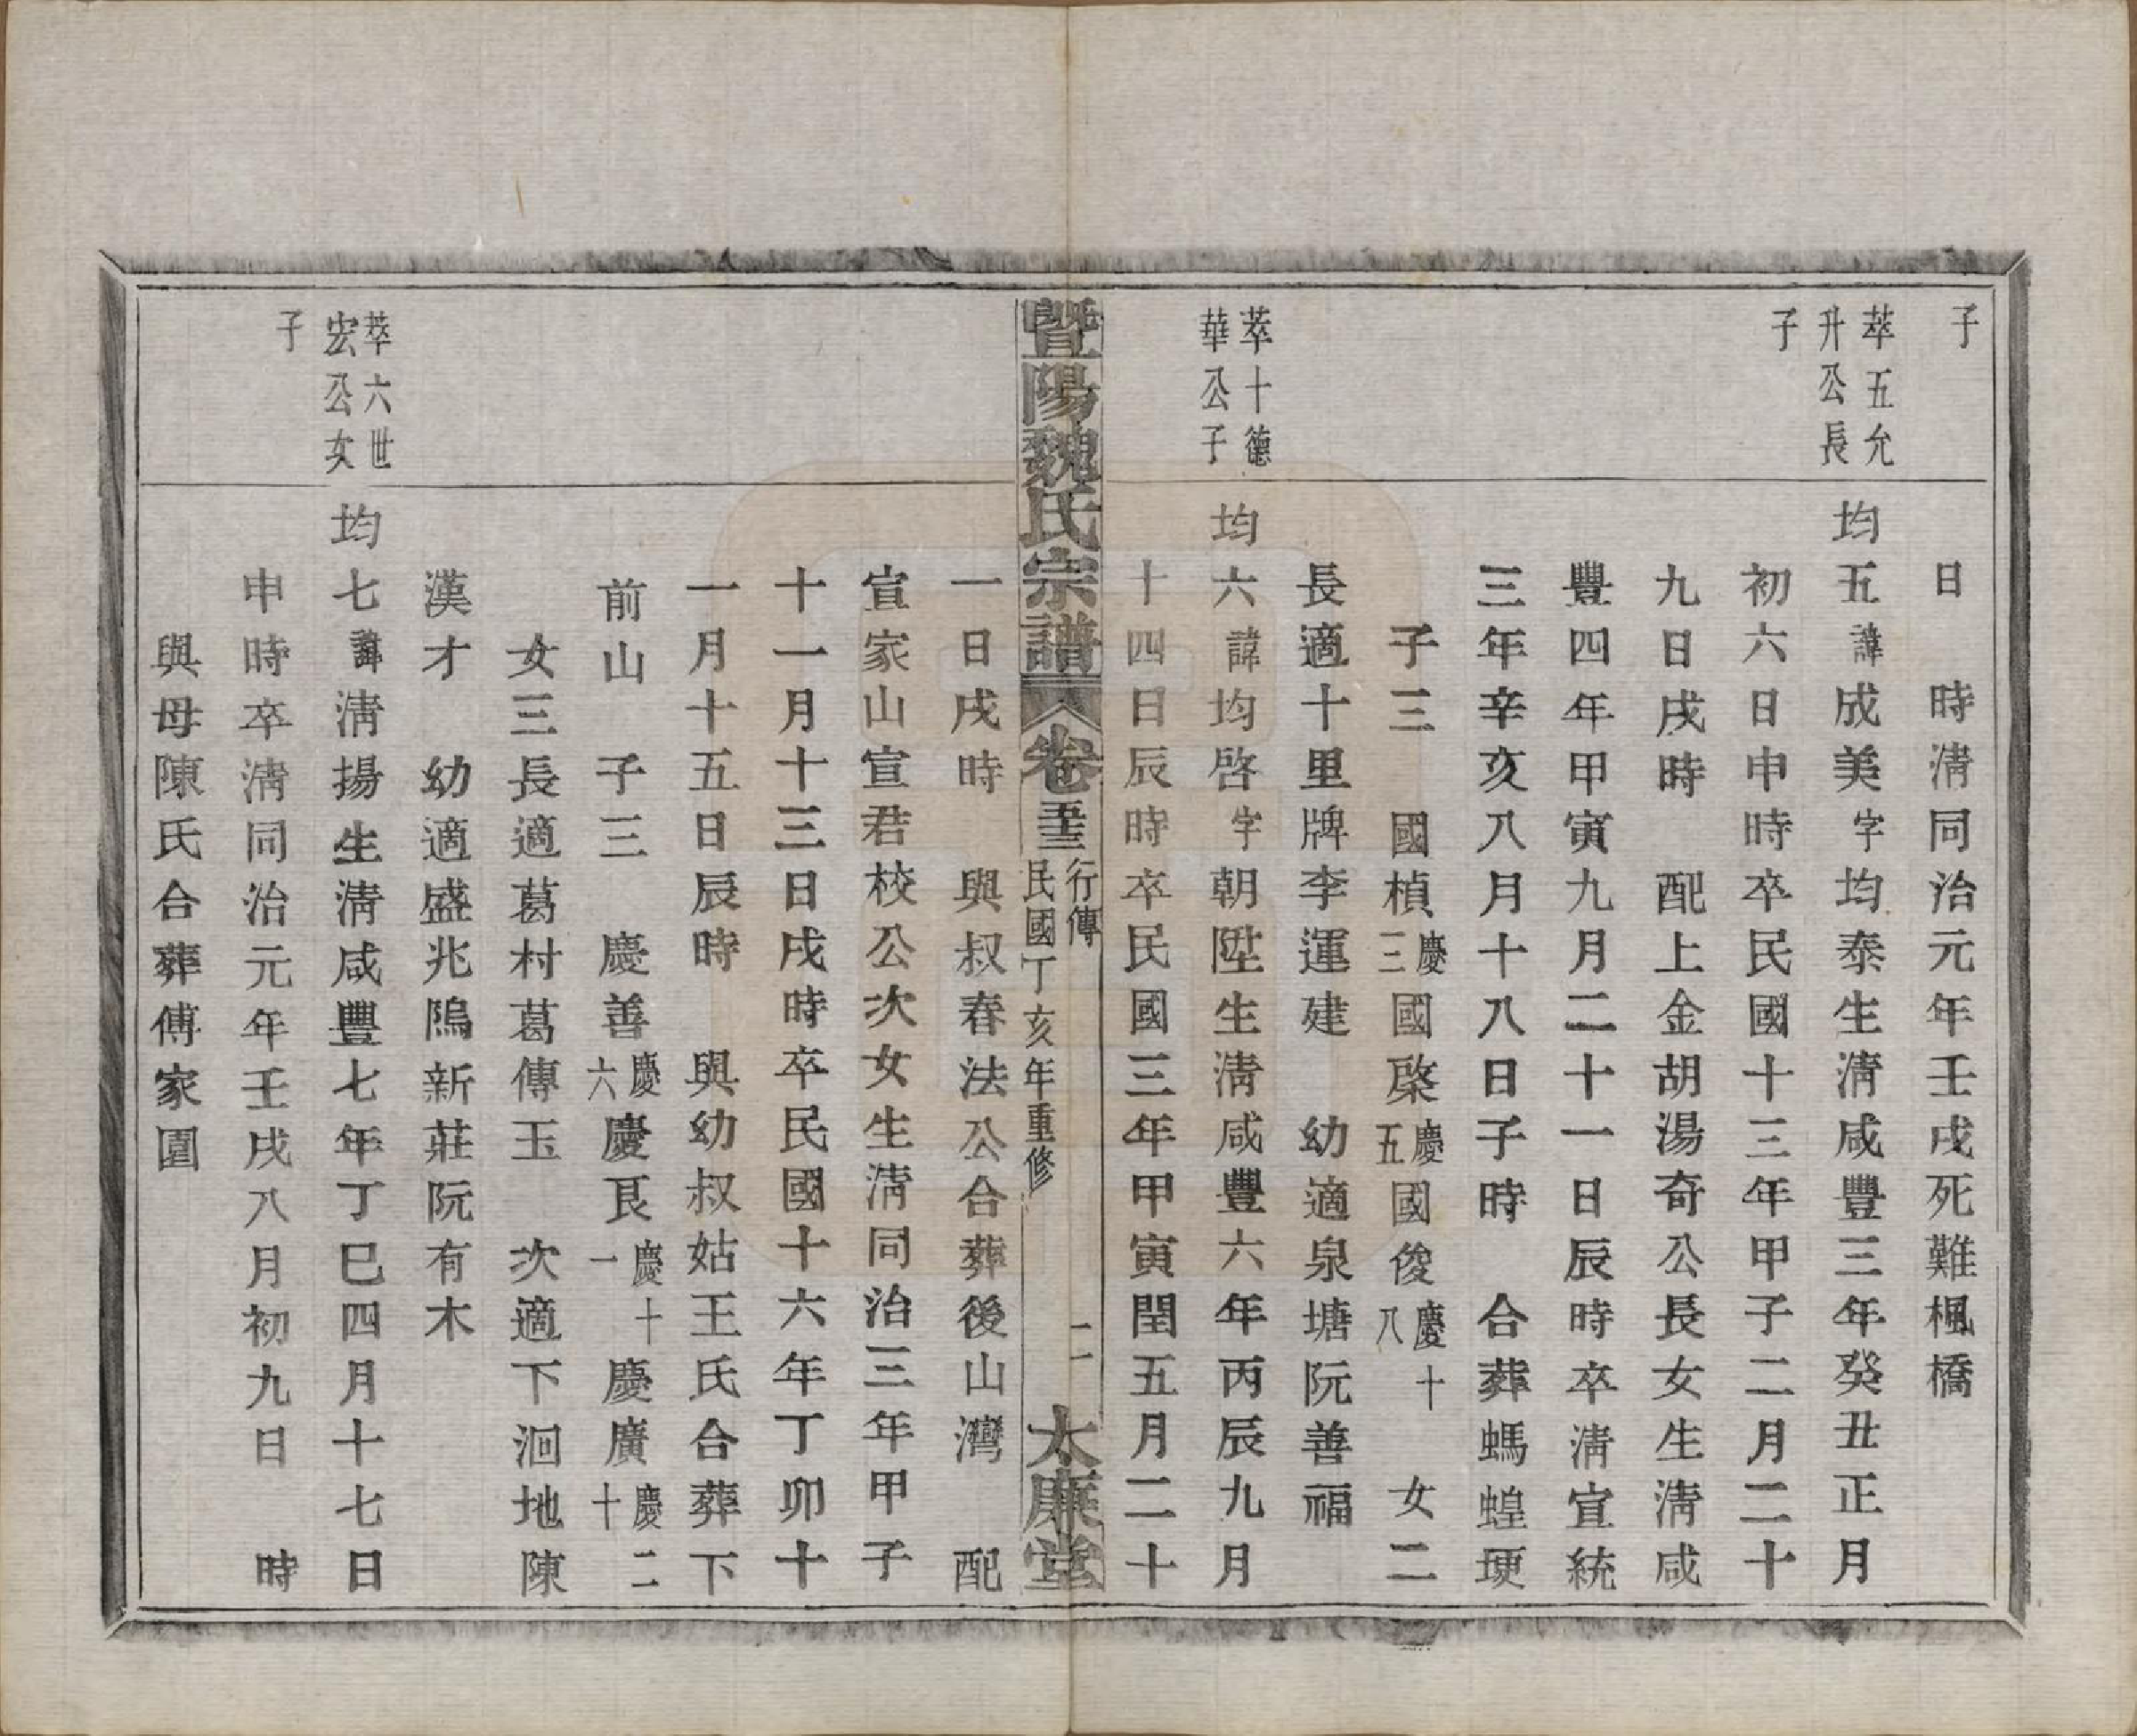 子
日　時清同治元年壬戌死難楓橋
萃五允
升公長
子
均五諱成美字均泰生清咸豐三年癸丑正月
初六日申時卒民國十三年甲子二月二十
九日戌時　配上金胡湯奇公長女生清咸
豐四年甲寅九月二十一日辰時卒清宣統
三年辛亥八月十八日子時　合葬螞蝗埂
子三　國楨慶三國棨慶五國俊慶十八　女二
長適十里牌李運建　幼適泉塘阮善福
萃十德
華公子
均六諱均啓字朝陞生清咸豐六年丙辰九月
十四日辰時卒民國三年甲寅閏五月二十
暨陽魏氏宗譜
卷五十三
行傳
民國丁亥年重修
二
太廉堂
一日戌時　與叔春法公合葬後山灣　配
宣家山宣君校公次女生清同治三年甲子
十一月十三日戌時卒民國十六年丁卯十
一月十五日辰時　與幼叔姑王氏合葬下
前山　子三　慶善慶六慶艮慶十一慶廣慶二十
女三長適葛村葛傳玉　次適下洄地陳
漢才　幼適盛兆隖新莊阮有木
萃六世
宏公女
子
均七諱清揚生清咸豐七年丁巳四月十七日
申時卒清同治元年壬戌八月初九日　時
與母陳氏合葬傅家圍